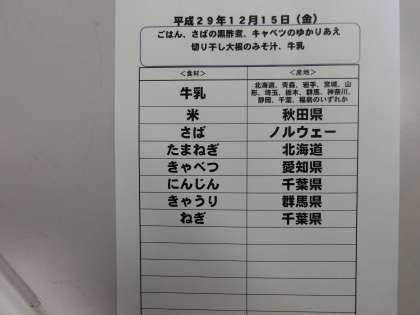 平成29年12月15日（金）
ごはん、さばの黒酢煮、キャベツのゆかりあえ
切り干し大根のみそ汁、牛乳
＜食材＞ ＜産地＞
牛乳 北海道、青森、岩手、宮城、山
形、埼玉、栃木、群馬、神奈川、
静岡、千葉、福島のいずれか
米 秋田県
さば ノルウェー
たまねぎ 北海道
きゃべつ 愛知県
にんじん 千葉県
きゅうり 群馬県
ねぎ 千葉県